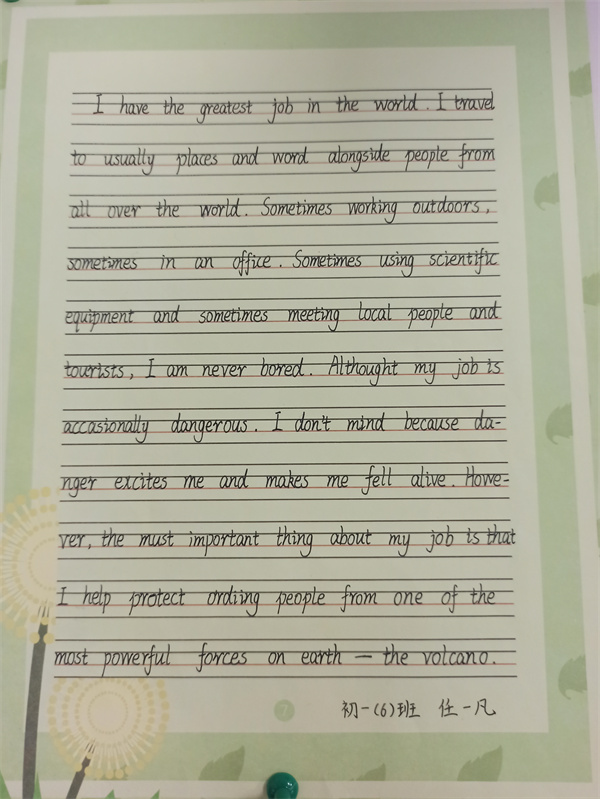 I have the greatest job in the world. I travel
to usually places and word alongside people from
all over the world. Sometimes working outdoors,
sometimes in an office. Sometimes using scientific
equipment and sometimes meeting local people and
tourists, I am never bored. Althought my job is
accasionally dangerous. I don't mind because da-
nger excites me and makes me fell alive. Howe-
ver, the must important thing about my job is that
I help protect ordiing people from one of the
most powerful forces on earth — the volcano.
初一(6)班 任一凡